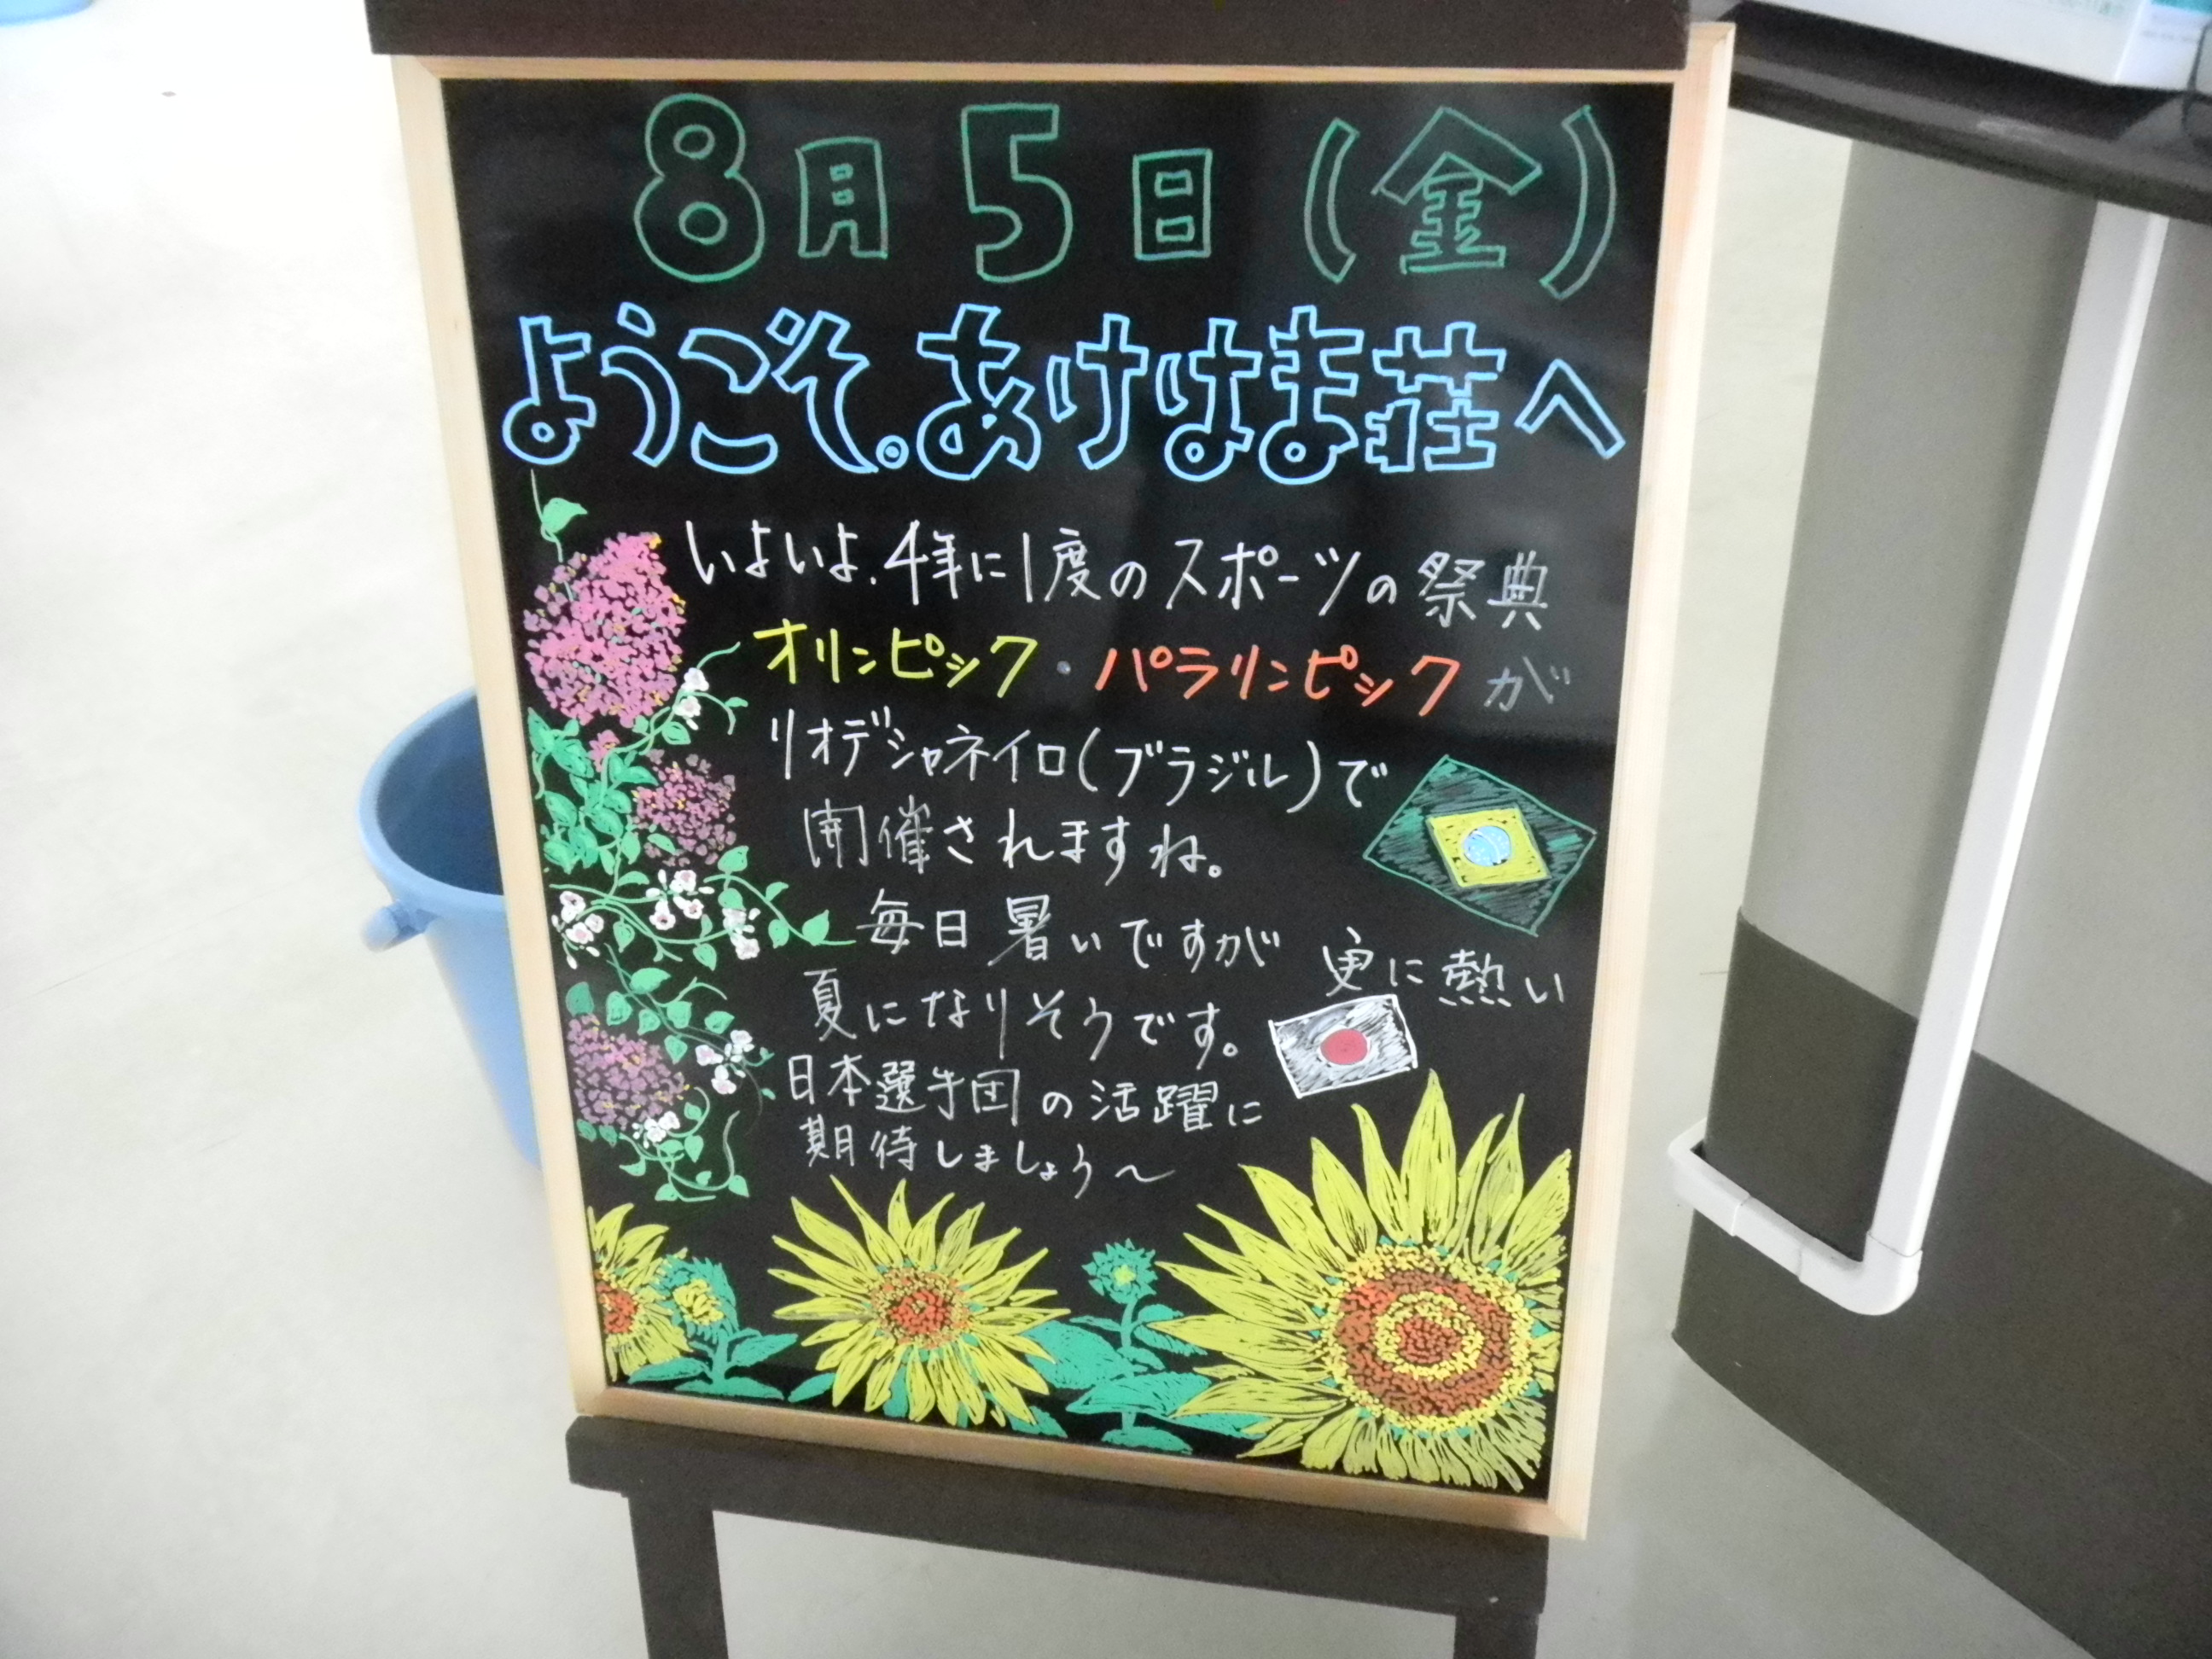 8月5日(金)
ようこそ。あけはま荘へ
いよいよ、4年に1度のスポーツの祭典
オリンピック・パラリンピックが
リオデジャネイロ(ブラジル)で
開催されますね。
毎日暑いですが 更に熱い
夏になりそうです。
日本選手団の活躍に
期待しましょう〜